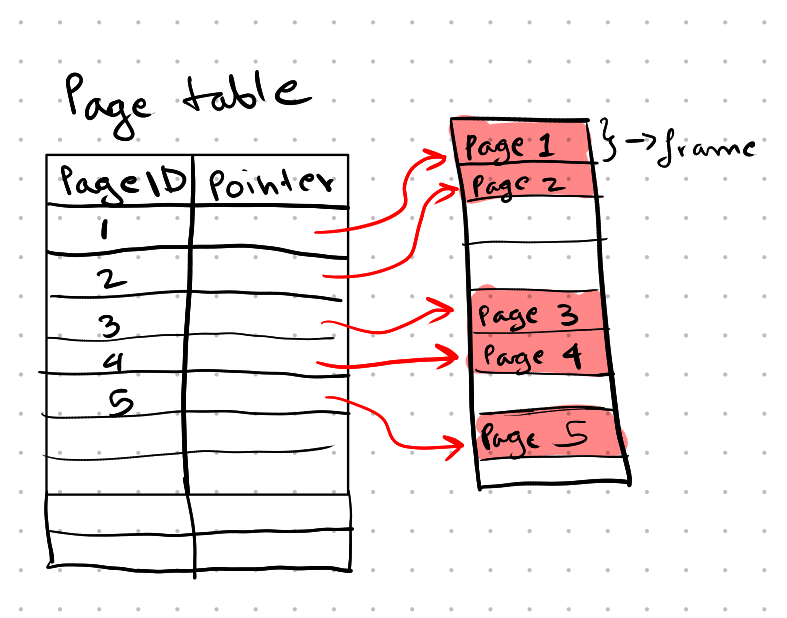 Page table
Page ID Pointer
1
2
3
4
5
Page 1
Page 2
Page 3
Page 4
Page 5
} → frame